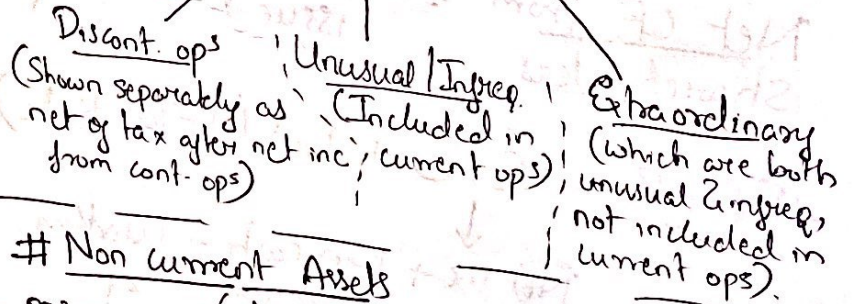 Discont. ops
(Shown separately as
net of tax after net inc
from cont. ops)
Unusual/Infreq.
(Included in
current ops)
Extraordinary
(which are both
unusual & infreq,
not included in
current ops).
# Non current Assets